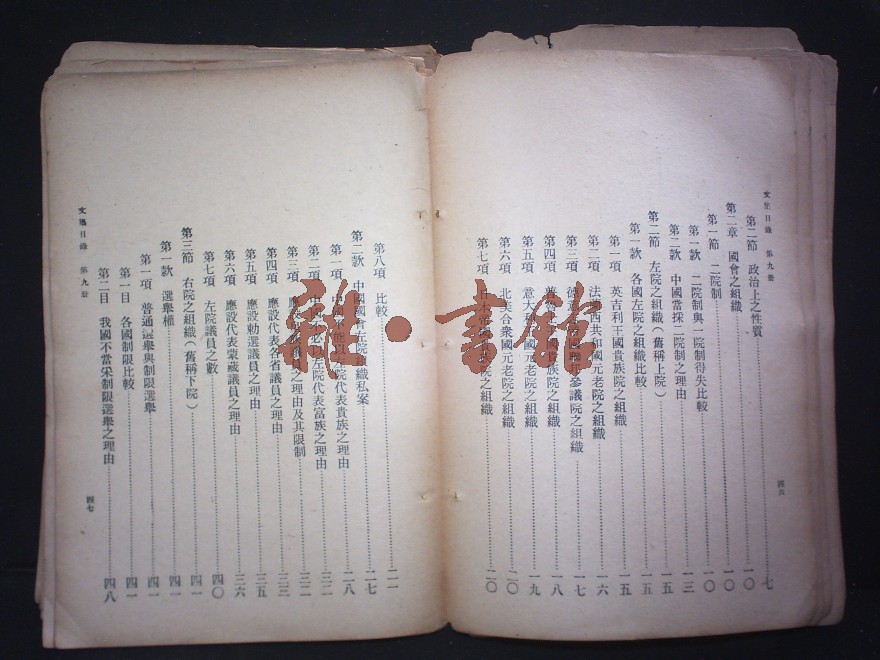 文集目錄 第九册
第二節 政治上之性質 七
第二章 國會之組織 一〇
第一節 二院制 一〇
第一款 二院制與一院制得失比較 一〇
第二款 中國當採二院制之理由 一三
第二節 左院之組織（舊稱上院） 一五
第一款 各國左院之組織比較 一五
第一項 英吉利王國貴族院之組織 一五
第二項 法 西共和國元老院之組織 一六
第三項 參議院之組織 一七
第四項 普 國貴族院之組織 一八
第五項 意大利 國元老院之組織 一九
第六項 北美合衆國元老院之組織 二〇
第七項 日本 院之組織 二〇
四六
第八項 比較
第二款 中國國會左院組織私案 二七
第一項 中國 左院代表貴族之理由 二八
第二項 中國不必以左院代表富族之理由
第三項 應 議員之理由及其限制 三二
第四項 應設代表各省議員之理由 三三
第五項 應設勅選議員之理由 三五
第六項 應設代表蒙藏議員之理由 三六
第七項 左院議員之數 四〇
第三節 右院之組織（舊稱下院） 四一
第一款 選舉權 四一
第一項 普通選舉與制限選舉 四一
第一目 各國制限比較 四一
第二目 我國不當采制限選舉之理由 四八
文集目錄 第九册
四七
龍·書館